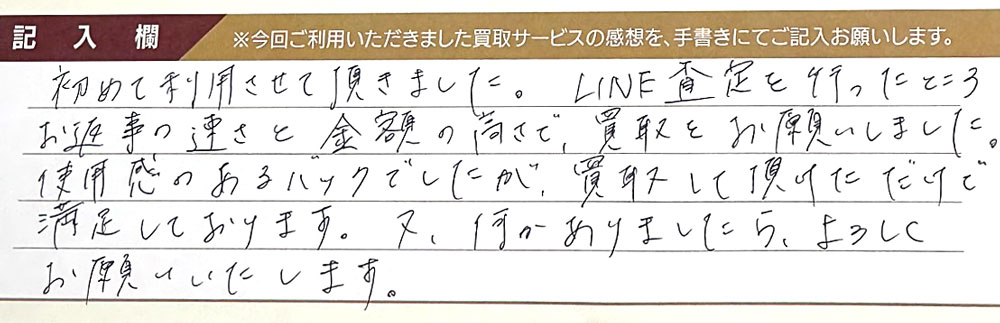 記入欄 ※今回ご利用いただきました買取サービスの感想を、手書きにてご記入お願いします。
初めて利用させて頂きました。 LINE査定を行ったところ
お返事の速さと金額の高さで、買取をお願いしました。
使用感のあるバックでしたが、買取して頂けただけで
満足しております。又、何かありましたら、よろしく
お願いいたします。